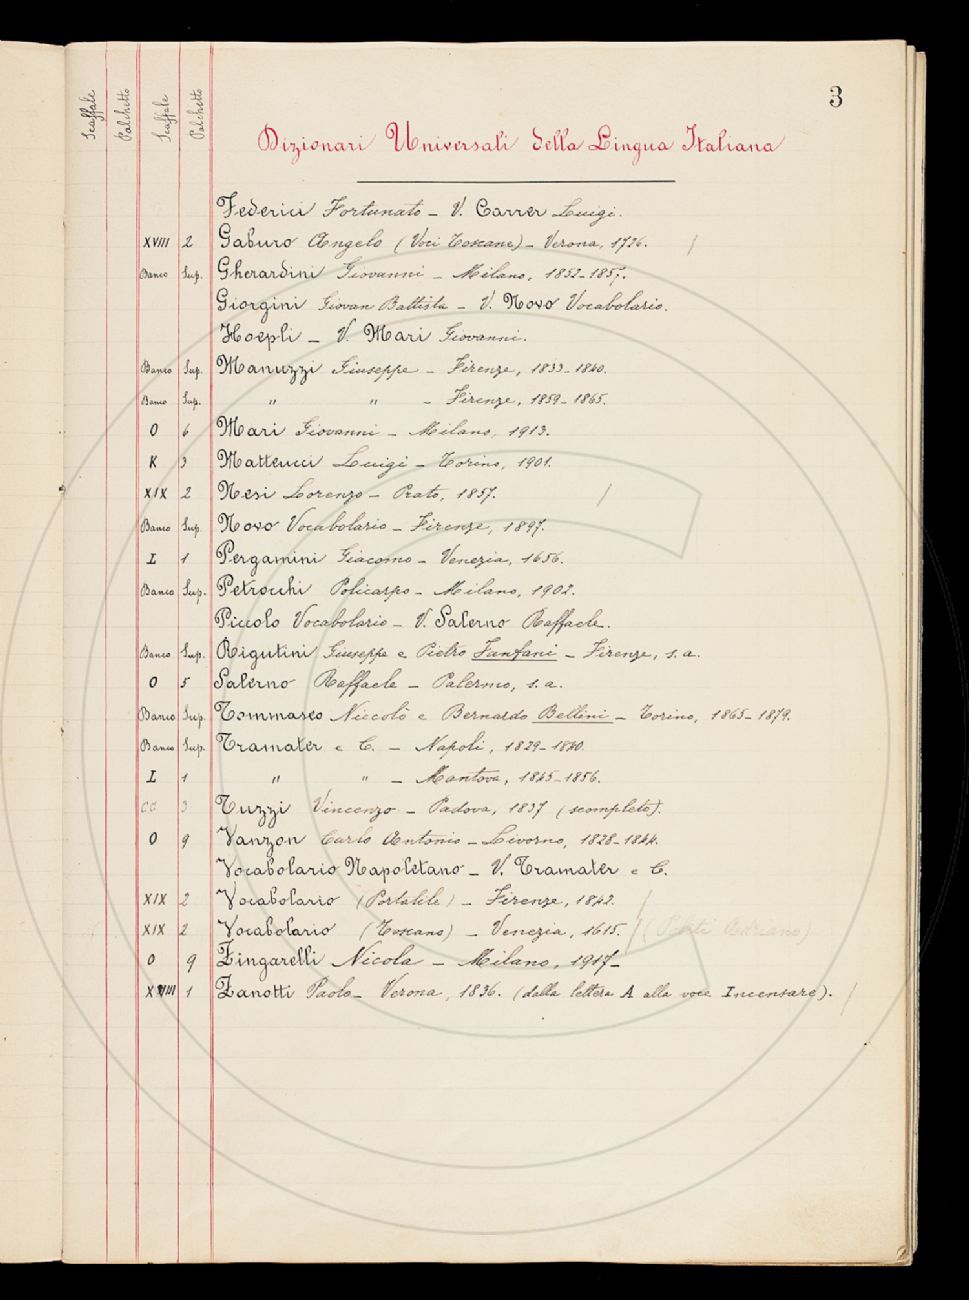 3
Scaffale Palchetto Scaffale Palchetto
Dizionari Universali della Lingua Italiana
Federici Fortunato – V. Carrer Luigi.
XVIII 2 Gaburo Angelo (Voci Toscane) – Verona, 1726. /
Banco Sup. Gherardini Giovanni – Milano, 1852–1857.
Giorgini Giovan Battista – V. Novo Vocabolario.
Hoepli – V. Mari Giovanni.
Banco Sup. Manuzzi Giuseppe – Firenze, 1833–1840.
Banco Sup. " " – Firenze, 1859–1865.
O 6 Mari Giovanni – Milano, 1913.
K 3 Matteucci Luigi – Torino, 1901.
XIX 2 Nesi Lorenzo – Prato, 1857. /
Banco Sup. Novo Vocabolario – Firenze, 1897.
I 1 Pergamini Giacomo – Venezia, 1656.
Banco Sup. Petrocchi Policarpo – Milano, 1902.
Piccolo Vocabolario – V. Salerno Raffaele.
Banco Sup. Rigutini Giuseppe e Pietro Fanfani – Firenze, s. a.
O 5 Salerno Raffaele – Palermo, s. a.
Banco Sup. Tommaseo Niccolò e Bernardo Bellini – Torino, 1865–1879.
Banco Sup. Tramater e C. – Napoli, 1829–1840.
I 1 " " – Mantova, 1845–1856.
3 Tuzzi Vincenzo – Padova, 1837 (scompleto).
O 9 Vanzon Carlo Antonio – Livorno, 1828–1844.
Vocabolario Napoletano – V. Tramater e C.
XIX 2 Vocabolario (Portatile) – Firenze, 1842. /
XIX 2 Vocabolario (Toscano) – Venezia, 1615. / (Politi Adriano)
O 9 Zingarelli Nicola – Milano, 1917–
XVIII 1 Zanotti Paolo – Verona, 1836. (dalla lettera A alla voce Incensare). /